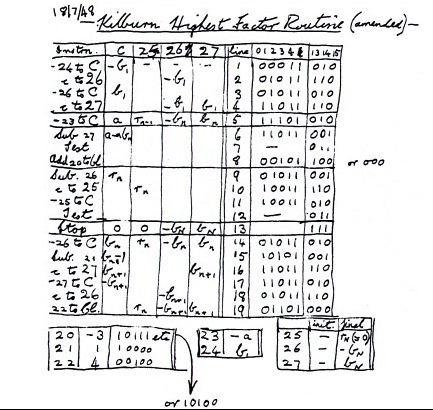 18/7/48
Kilburn Highest Factor Routine (amended)
Instrn. C 25 26 27 line 0 1 2 3 4 13 14 15
-24 to C -b₁ - - - 1 00011 010
c to 26 -b₁ 2 01011 110
-26 to C b₁ 3 01011 010
c to 27 -b₁ b₁ 4 11011 110
-23 to C a rₙ₋₁ -bₙ bₙ 5 11101 010
Sub. 27 a-bₙ 6 11011 001
Test 7 — 011
Add 20 to Cl. 8 00101 100 or 000
Sub. 26 rₙ 9 01011 001
c to 25 rₙ 10 10011 110
-25 to C 11 10011 010
Test 12 — 011
Stop 0 0 -bN bN 13 111
-26 to C bₙ rₙ -bₙ bₙ 14 01011 010
Sub. 21 bₙ₊₁ 15 10101 001
c to 27 bₙ₊₁ bₙ₊₁ 16 11011 110
-27 to C -bₙ₊₁ 17 11011 010
c to 26 -bₙ₊₁ 18 01011 110
22 to Cl. rₙ -bₙ₊₁ bₙ₊₁ 19 01101 000
20 -3 10111 etc
21 1 10000
22 4 00100
or 10100
23 -a
24 b₁
init. final
25 - rN(=0)
26 - -bN
27 - bN